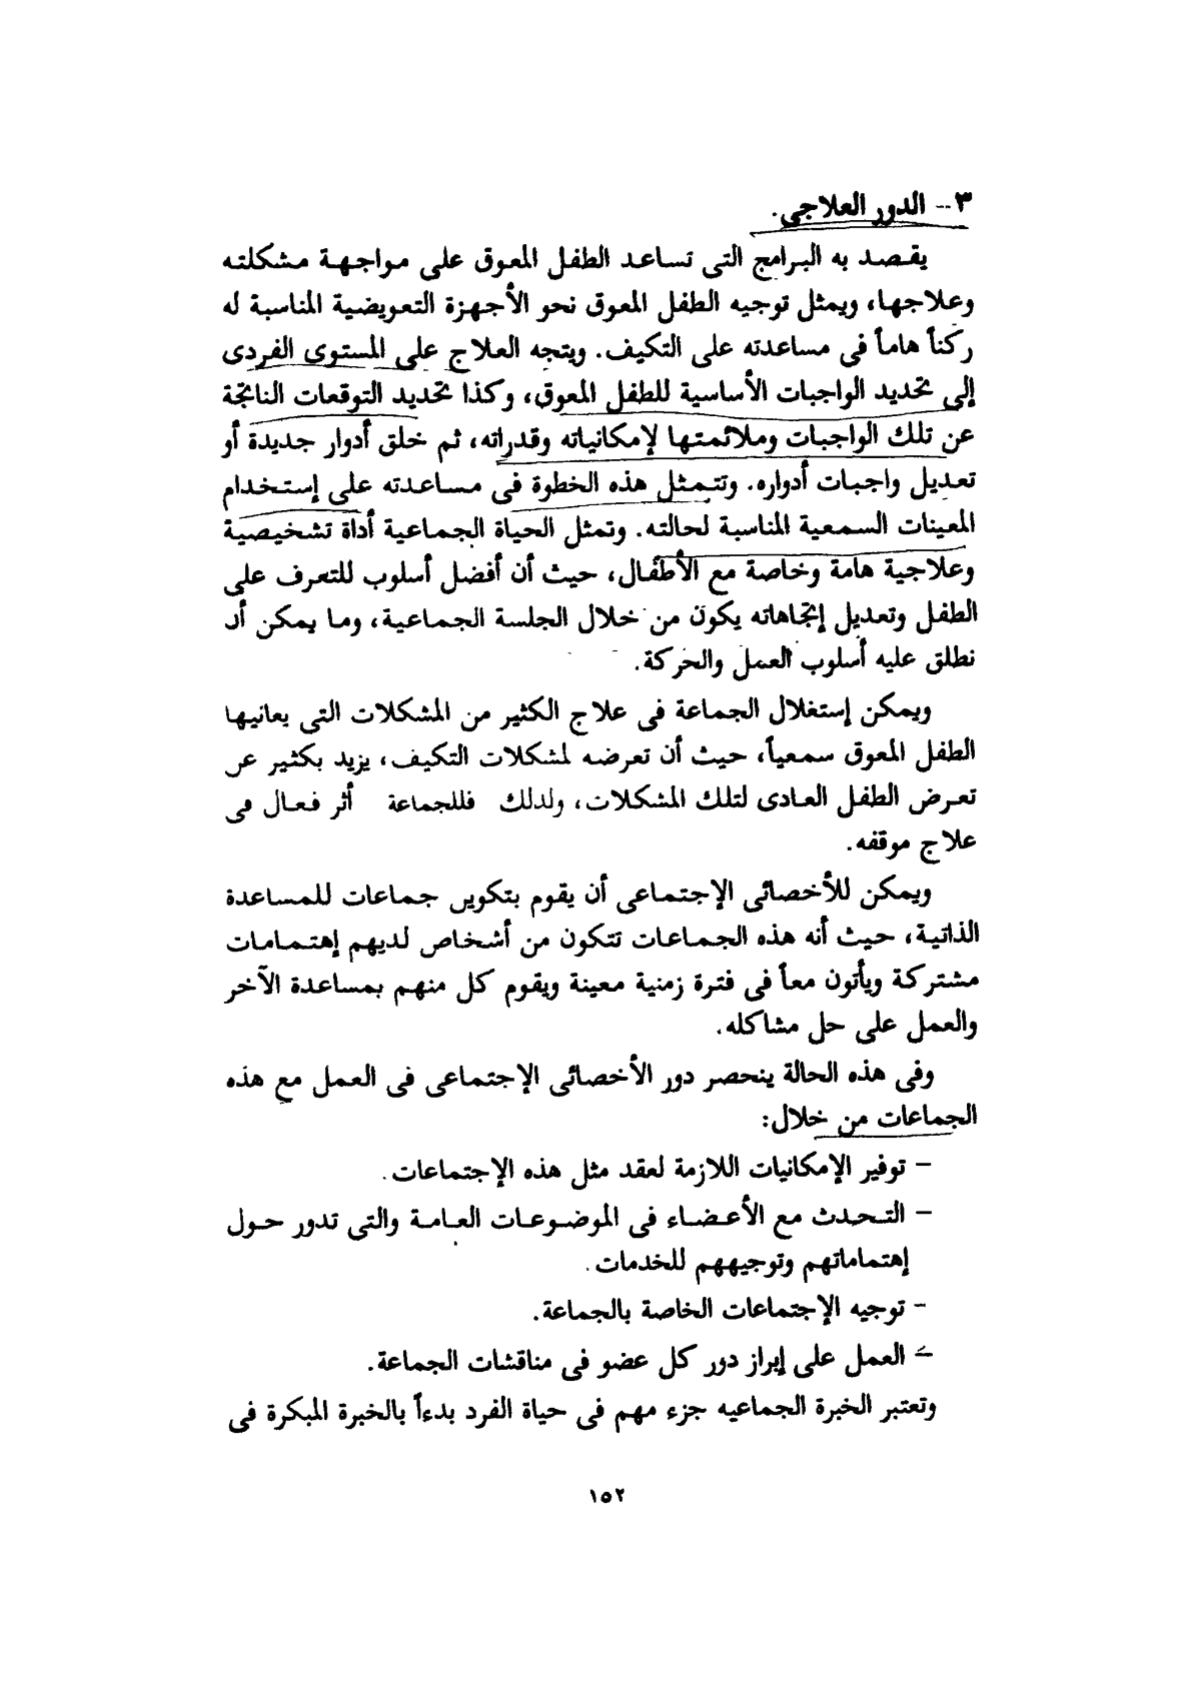 ٣ - الدور العلاجي.
يقصد به البرامج التى تساعد الطفل المعوق على مواجهة مشكلته
وعلاجها، ويمثل توجيه الطفل المعوق نحو الأجهزة التعويضية المناسبة له
ركناً هاماً فى مساعدته على التكيف. ويتجه العلاج على المستوى الفردى
إلى تحديد الواجبات الأساسية للطفل المعوق، وكذا تحديد التوقعات الناتجة
عن تلك الواجبات وملائمتها لإمكانياته وقدراته، ثم خلق أدوار جديدة أو
تعديل واجبات أدواره. وتتمثل هذه الخطوة فى مساعدته على إستخدام
المعينات السمعية المناسبة لحالته. وتمثل الحياة الجماعية أداة تشخيصية
وعلاجية هامة وخاصة مع الأطفال، حيث أن أفضل أسلوب للتعرف على
الطفل وتعديل إتجاهاته يكون من خلال الجلسة الجماعية، وما يمكن أن
نطلق عليه أسلوب العمل والحركة.
ويمكن إستغلال الجماعة فى علاج الكثير من المشكلات التى يعانيها
الطفل المعوق سمعياً، حيث أن تعرضه لمشكلات التكيف، يزيد بكثير عن
تعرض الطفل العادى لتلك المشكلات، ولذلك فللجماعة أثر فعال فى
علاج موقفه.
ويمكن للأخصائى الإجتماعى أن يقوم بتكوين جماعات للمساعدة
الذاتية، حيث أنه هذه الجماعات تتكون من أشخاص لديهم إهتمامات
مشتركة ويأتون معاً فى فترة زمنية معينة ويقوم كل منهم بمساعدة الآخر
والعمل على حل مشاكله.
وفى هذه الحالة ينحصر دور الأخصائى الإجتماعى فى العمل مع هذه
الجماعات من خلال:
- توفير الإمكانيات اللازمة لعقد مثل هذه الإجتماعات.
- التحدث مع الأعضاء فى الموضوعات العامة والتى تدور حول
إهتماماتهم وتوجيههم للخدمات.
- توجيه الإجتماعات الخاصة بالجماعة.
- العمل على إبراز دور كل عضو فى مناقشات الجماعة.
وتعتبر الخبرة الجماعيه جزء مهم فى حياة الفرد بدءاً بالخبرة المبكرة فى
١٥٢